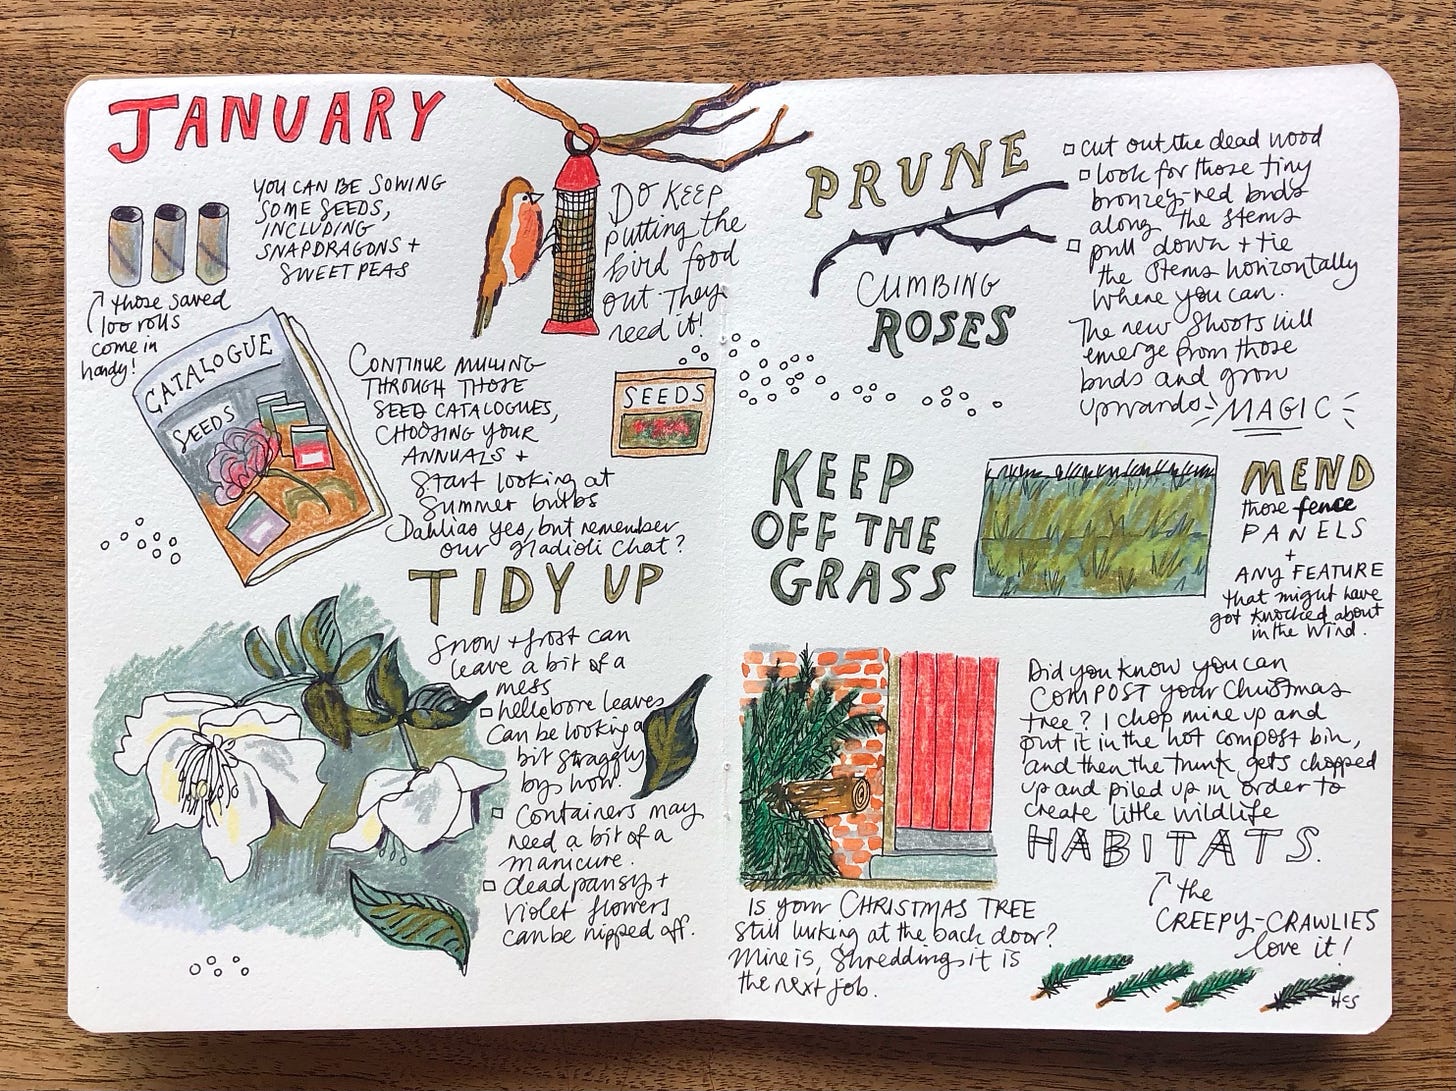 JANUARY
YOU CAN BE SOWING
SOME SEEDS,
INCLUDING
SNAPDRAGONS +
SWEET PEAS
those saved
loo rolls
come in
handy!
DO KEEP
putting the
bird food
out. They
need it!
CATALOGUE
SEEDS
CONTINUE MULLING
THROUGH THOSE
SEED CATALOGUES,
CHOOSING YOUR
ANNUALS +
Start looking at
Summer bulbs
Dahlias yes, but remember
our gladioli chat?
SEEDS
TIDY UP
Snow + frost can
leave a bit of a
mess
hellebore leaves
can be looking a
bit straggly
by now.
Containers may
need a bit of a
manicure.
dead pansy +
violet flowers
can be nipped off.
PRUNE
CLIMBING
ROSES
cut out the dead wood
look for those tiny
bronzey-red buds
along the stems
pull down + tie
the stems horizontally
where you can.
The new shoots will
emerge from those
buds and grow
upwards MAGIC
KEEP
OFF THE
GRASS
MEND
those fence
PANELS
+
ANY FEATURE
that might have
got knocked about
in the wind.
Is your CHRISTMAS TREE
still lurking at the back door?
Mine is, shredding it is
the next job.
Did you know you can
COMPOST your Christmas
tree? I chop mine up and
put it in the hot compost bin,
and then the trunk gets chopped
up and piled up in order to
create little wildlife
HABITATS.
the
CREEPY-CRAWLIES
love it!
HCS